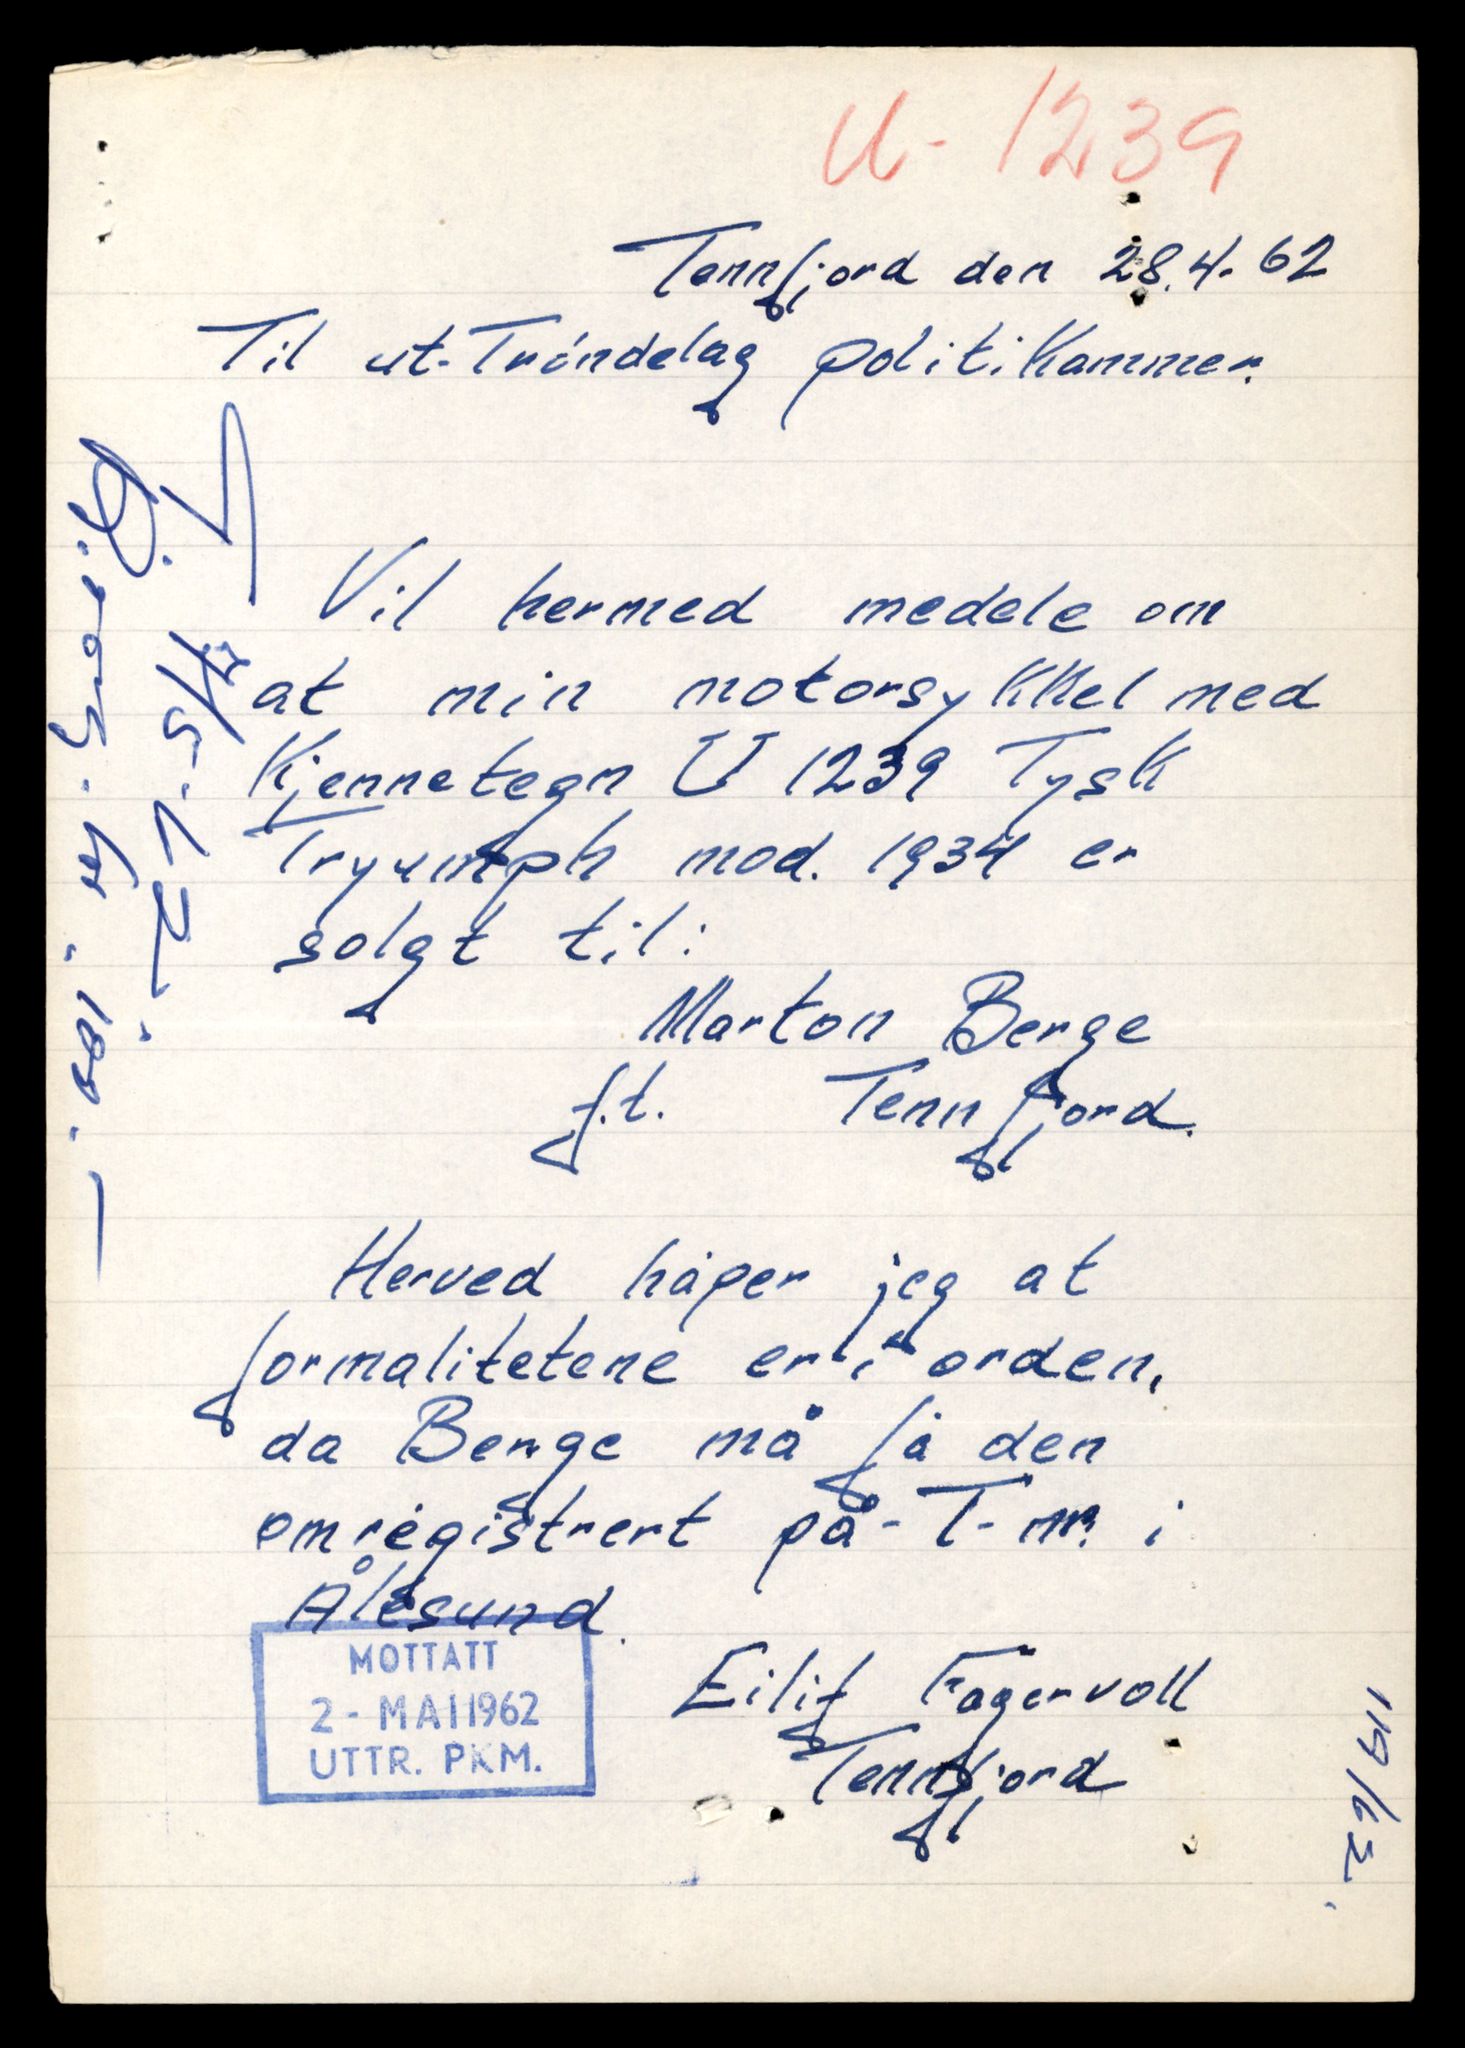 U-1239
Tennfjord den 28.4.62
Til ut-Tröndelag politikammer.
Vil hermed medele om
at min motorsykkel med
Kjennetegn U 1239 Tysk
Tryumph mod. 1934 er
solgt til:
Marton Berge
f.t. Tennfjord.
Herved håper jeg at
formalitetene er i orden,
da Berge må få den
omregistrert på-T-nr. i
Ålesund.
Eilif Fagervoll
Tennfjord
MOTTATT
2-MAI1962
UTTR. PKM.
kr. 100.-
119/62.